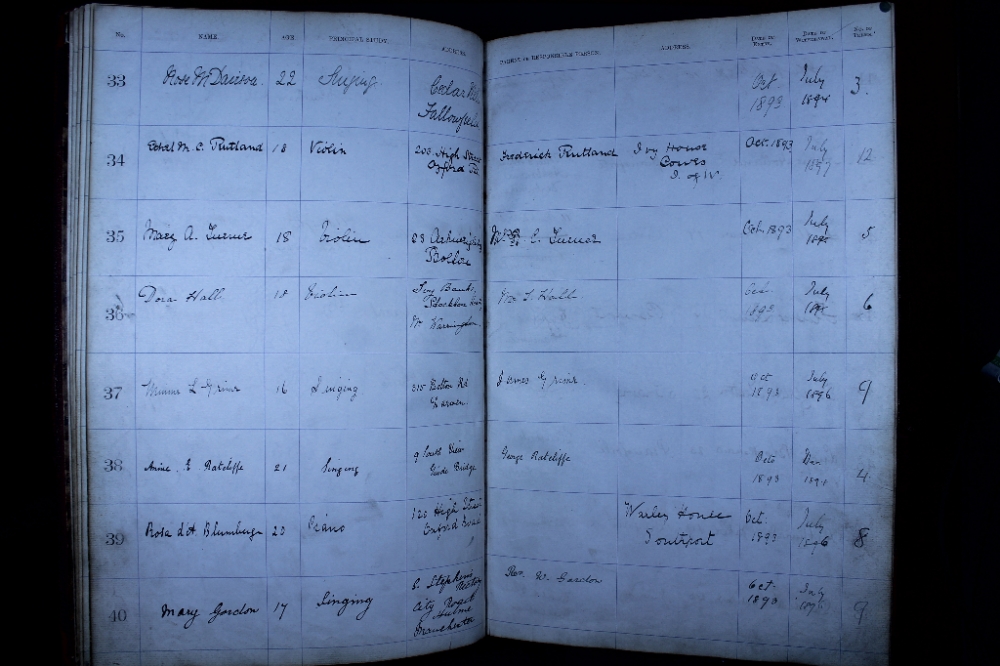 No. NAME. AGE. PRINCIPAL STUDY. ADDRESS. PARENT OR RESPONSIBLE PERSON. ADDRESS. DATE OF ENTRY. DATE OF WITHDRAWAL. NO. OF TERMS.
33 Rose M Davison 22 Singing Cedar Oct 1893 July 1894 3.
Fallowfield
34 Ethel M. C. Rutland 18 Violin 200 High Street Frederick Rutland Ivy House Oct. 1893 July 1897 12
Oxford Cowes
I. of W.
35 Mary A. Turner 18 Violin 23 E. Turner Oct. 1893 July 5
Bolton
36 Dora Hall 18 Violin Ivy Bank, Hall Oct. 1893 July 6
Stockton
Nr Warrington.
37 L 16 Singing 215 Bolton Rd James Oct 1893 July 1896 9
Darwen.
38 Annie E Ratcliffe 21 Singing 9 South View George Ratcliffe Octo 1893 Dec. 4
Guide Bridge
39 Rosa Blumberg 23 Piano 120 High Street House Oct. 1893 July 1896 8
Oxford Road Southport
40 Mary Gordon 17 Singing S. Stephens Rev. W. Gordon Oct. 1893 July 9
City Road
Hulme
Manchester